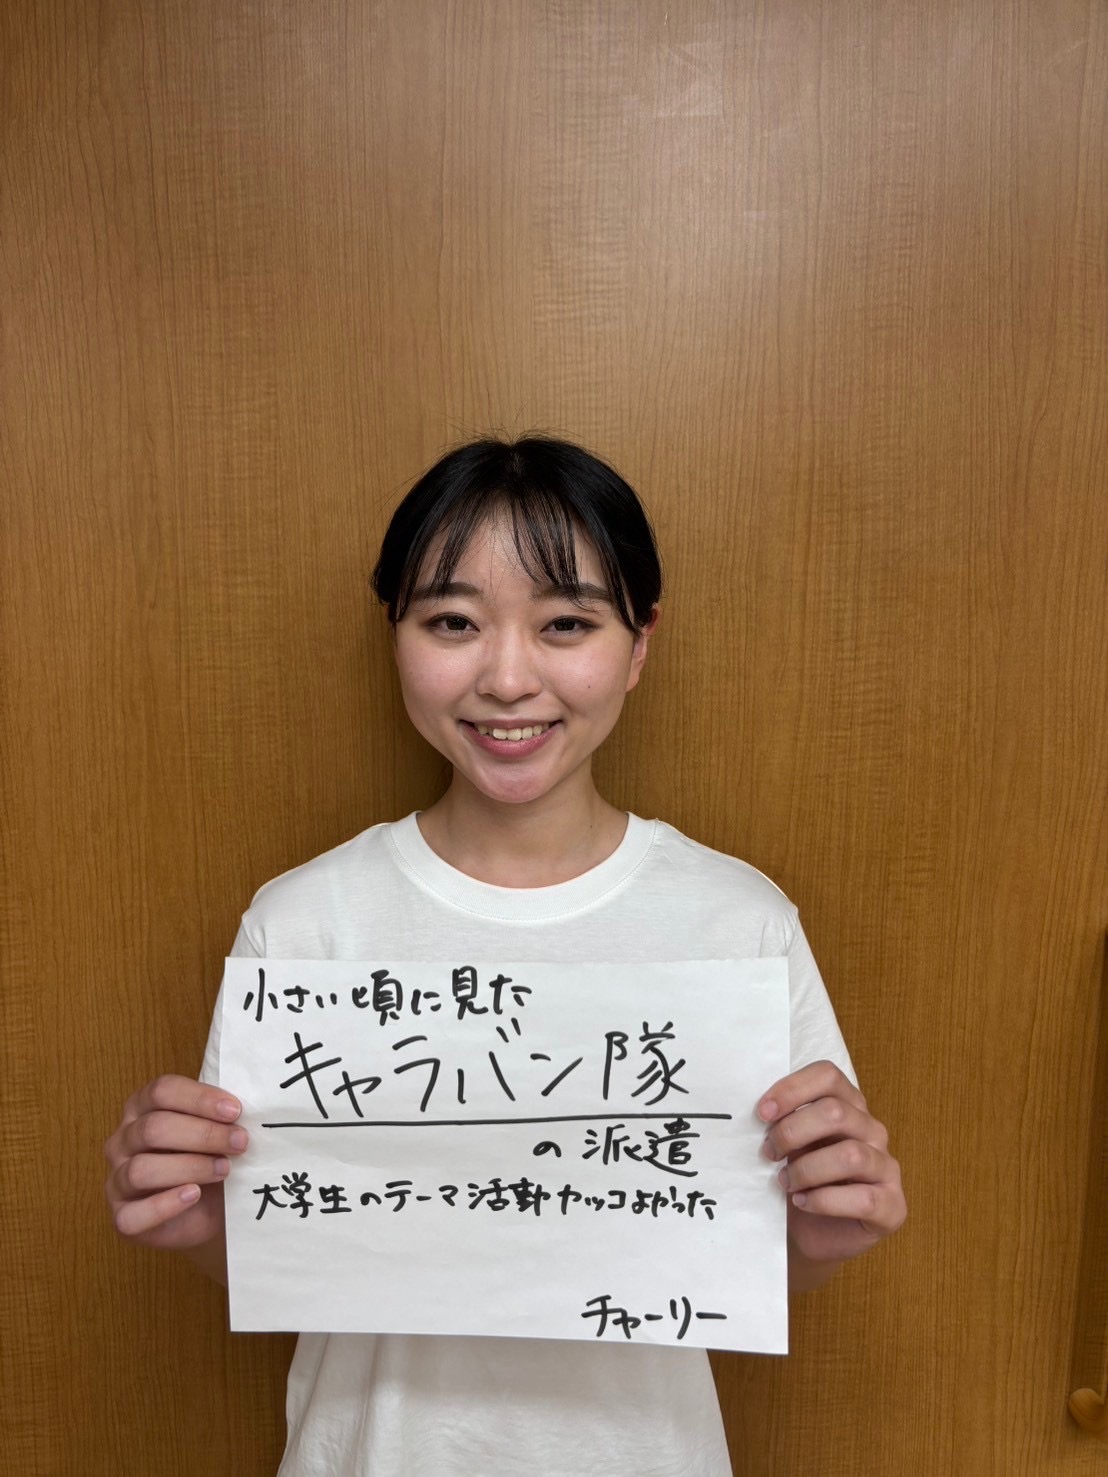 小さい頃に見た
キャラバン隊
の派遣
大学生のテーマ活動カッコよかった
チャーリー